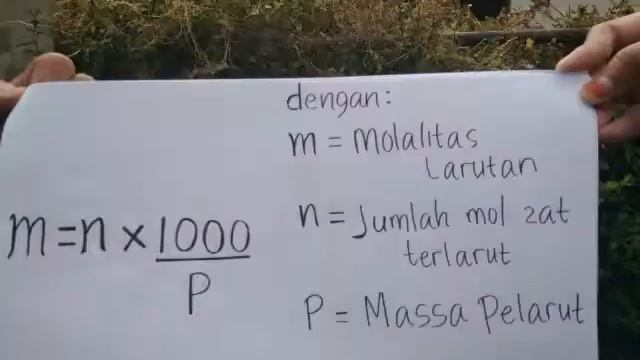 m=n × 1000
P
dengan:
m = Molalitas
Larutan
n = Jumlah mol zat
terlarut
P = Massa Pelarut